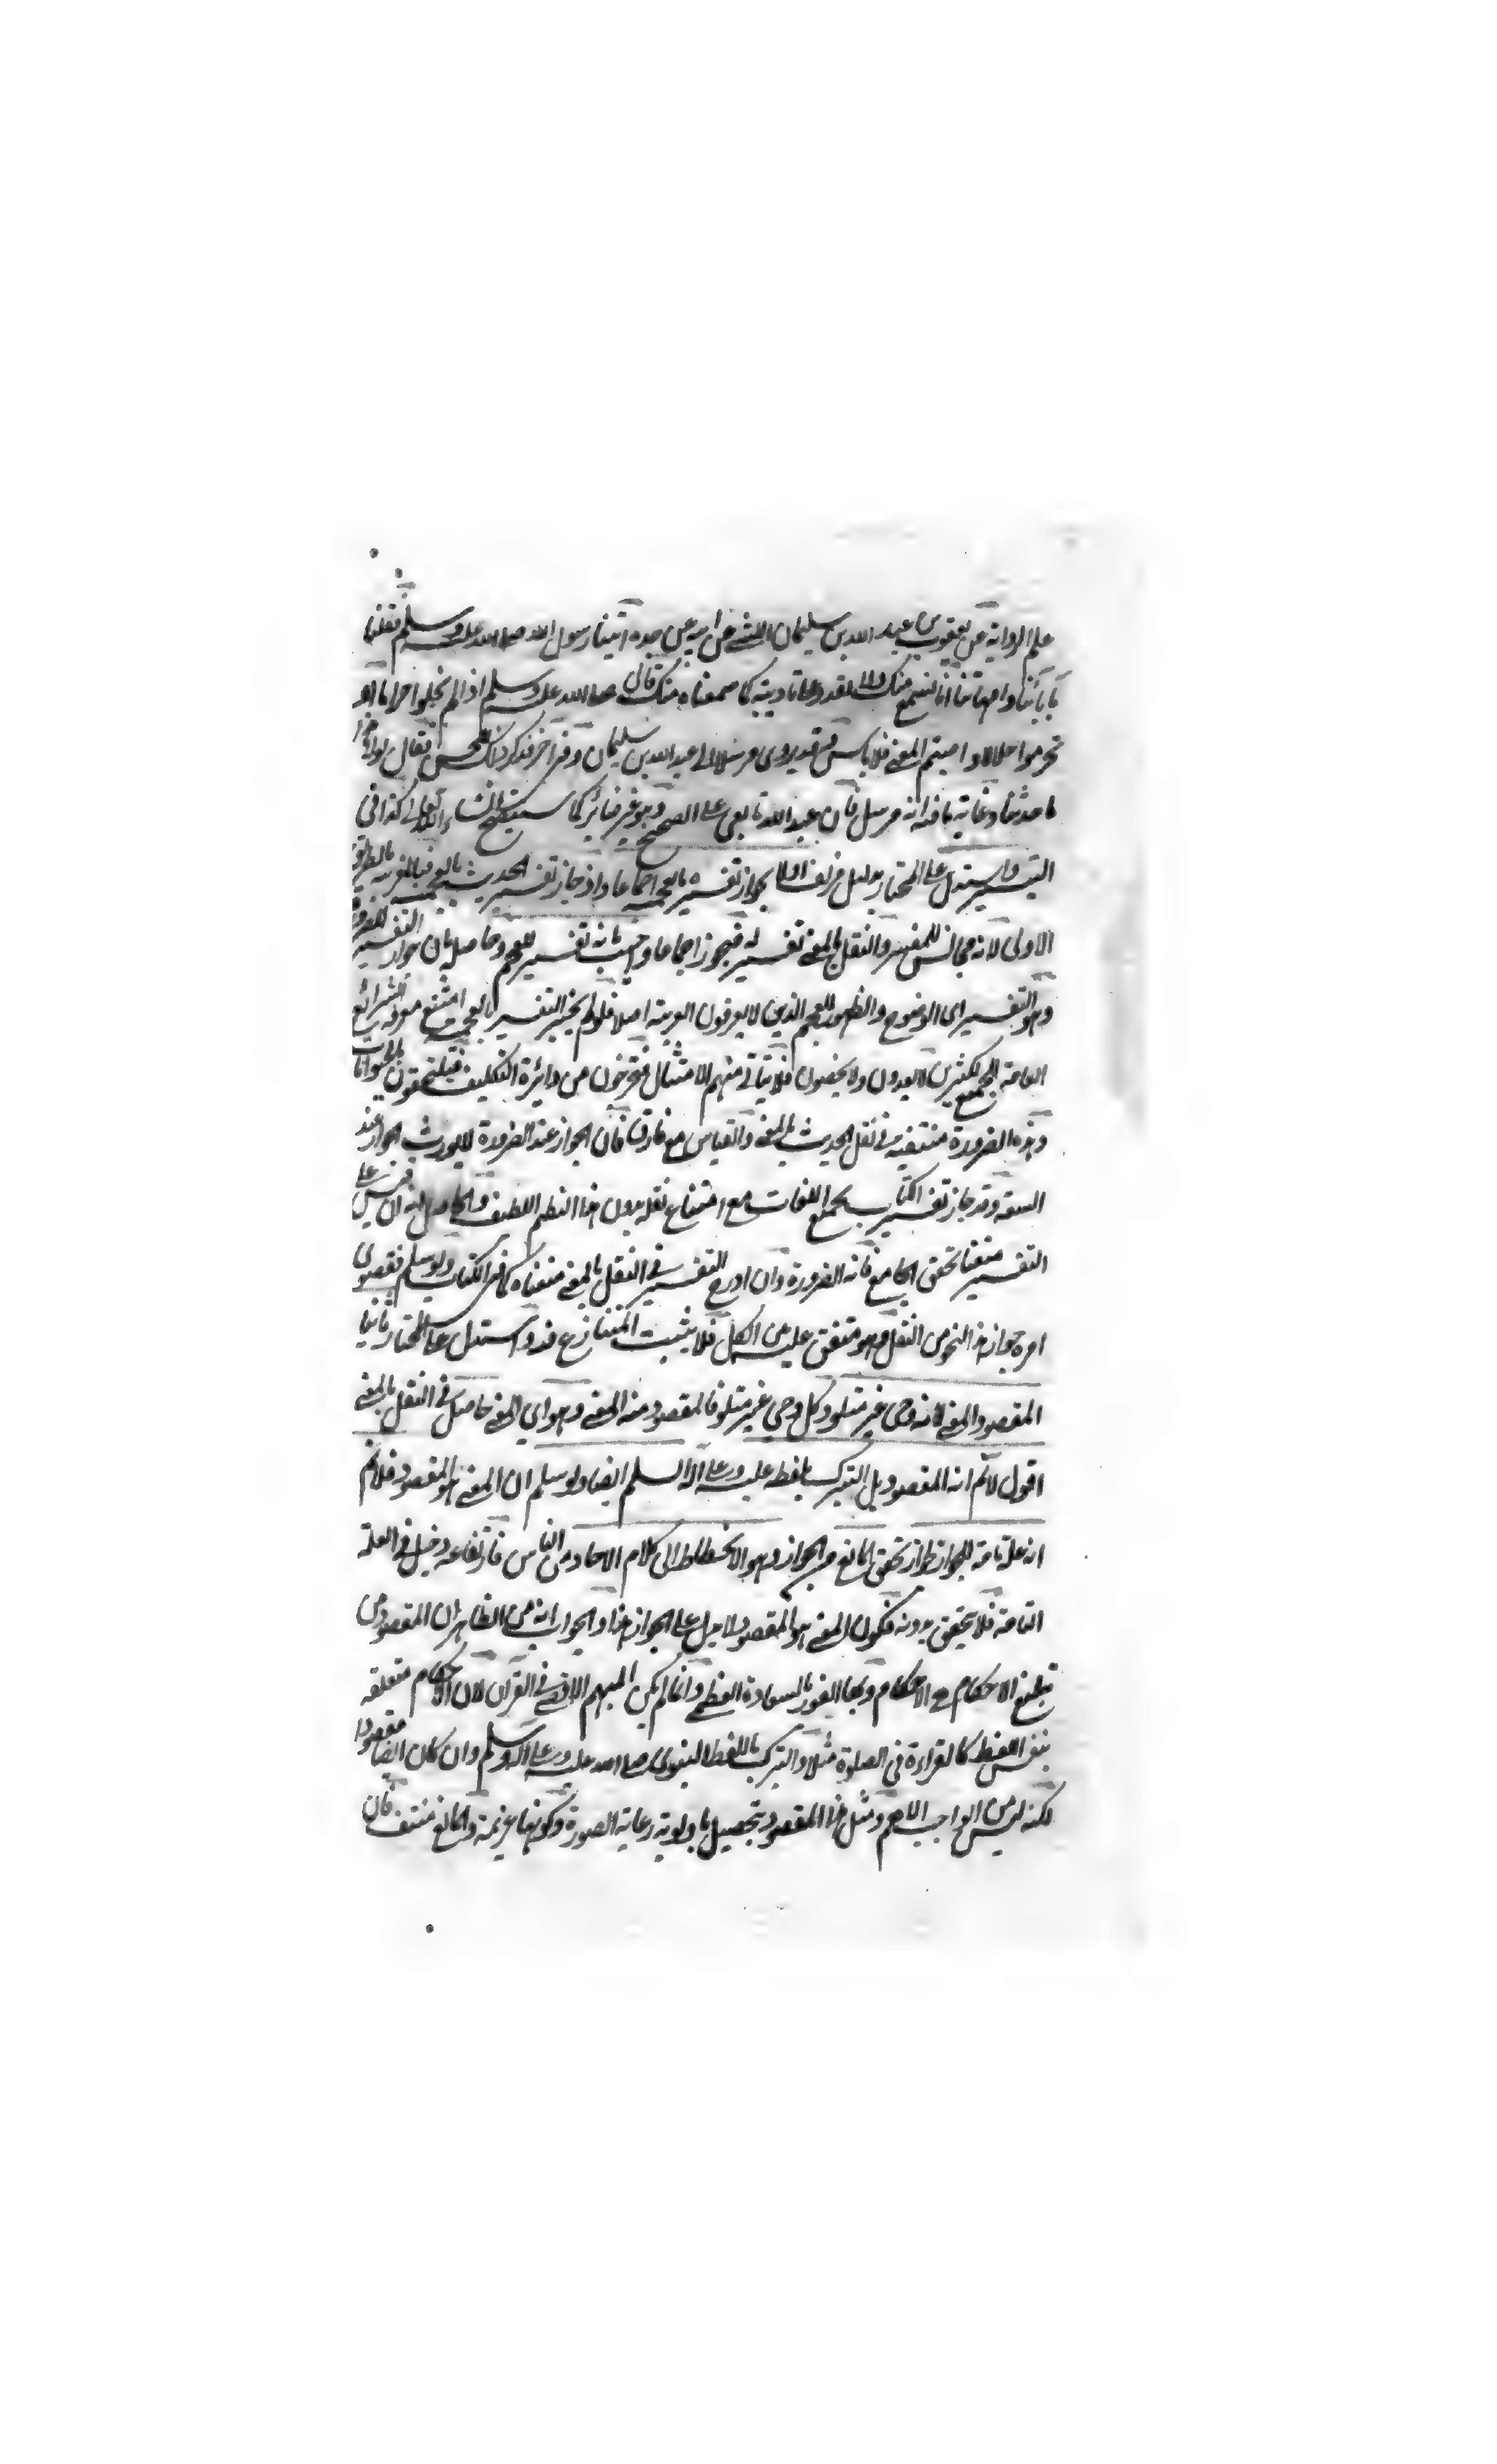 علم الرواية عن يعقوب بن عبد الله بن سليمان الليثي عن ابيه عن جده اتينا رسول الله صلى الله عليه وسلم فقلنا
بآبائنا وامهاتنا انا لنسمع منك ولا نقدر على تاديته كما سمعناه منك قال صلى الله عليه وسلم اذا لم تحلوا حراما او
تحرموا حلالا واصبتم المعنى فلا باس قد يروى مرسلا الى عبد الله بن سليمان وفي آخر فذكر ذلك للحسن فقال لولا هذا
ما حدثنا وغاية ما فيه انه مرسل فان عبد الله تابعي على الصحيح وهو غير ضائر كما سيتضح ان شاء الله تعالى كذا في
التيسير واستدل على المختار بدليل مزيف اولا بجواز تفسيره بالعجمية اجماعا واذ جاز تفسير الحديث بالعجمية فبالعربية بالطريق
الاولى لانه مجانس للمفسر والنقل بالمعنى تفسير له فيجوز اجماعا واجيب بانه تفسير للعجم وحاصله ان جواز التفسير للضرورة
وهو التفسير اى الوضوح والظهور للعجم الذين لا يعرفون العربية اصلا فلو لم يجز التفسير بالعجمية امتنع معرفة الشرائع
العامة لجمع كثيرين لا يعدون ولا يحصون فلا يتأتى منهم الامتثال فيخرجون من دائرة التكليف فيلتحقون بالحيوانات
وهذه الضرورة منتفية في نقل الحديث بالمعنى والقياس مع فارق فان الجواز عند الضرورة لا يورث الجواز عند
السعة وقد جاز تفسير الكتاب بجميع اللغات مع امتناع نقله بدون هذا النظم اللطيف والحاصل انه ان قيس على
التفسير منعنا تحقق الجامع فانه الضرورة وان ادرج التفسير في النقل بالمعنى منعناه كما في الكتاب ولو سلم فقصوى
امره جواز هذا النحو من النقل وهو متفق عليه من الكل فلا يثبت المتنازع فيه واستدل على المختار ثانيا
المقصود المعنى لانه وحي غير متلو وكل وحي غير متلو فالمقصود منه المعنى وهو اي المعنى حاصل في النقل بالمعنى
اقول لا نم انه المقصود بل التبرك بلفظه عليه وعلى آله السلم ايضا ولو سلم ان المعنى هو المقصود فلا نم
انه علة تامة للجواز لجواز تحقق المانع من الجواز وهو الانحطاط الى كلام الاحاد من الناس فارتفاعه دخيل في العلة
التامة فلا يتحقق بدونه فكون المعنى هو المقصود لا يدل على الجواز هذا والجواب انه من الظاهر ان المقصود من
تبليغ الاحكام هي الاحكام وبها الفوز بالسعادة العظمى وانما لم يكن المبهم الا في القرآن لان الاحكام متعلقة
بنفس اللفظ كالقراءة في الصلوة مثلا والتبرك باللفظ النبوى صلى الله عليه وعلى آله وسلم وان كان ايضا مقصودا
لكنه ليس من الواجب الاهم ومثل هذا المقصود تحصيل باولوية رعاية الصورة وكونها عزيمة والمانع منتف فان